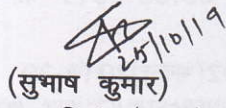 25/10/19
(सुभाष कुमार)